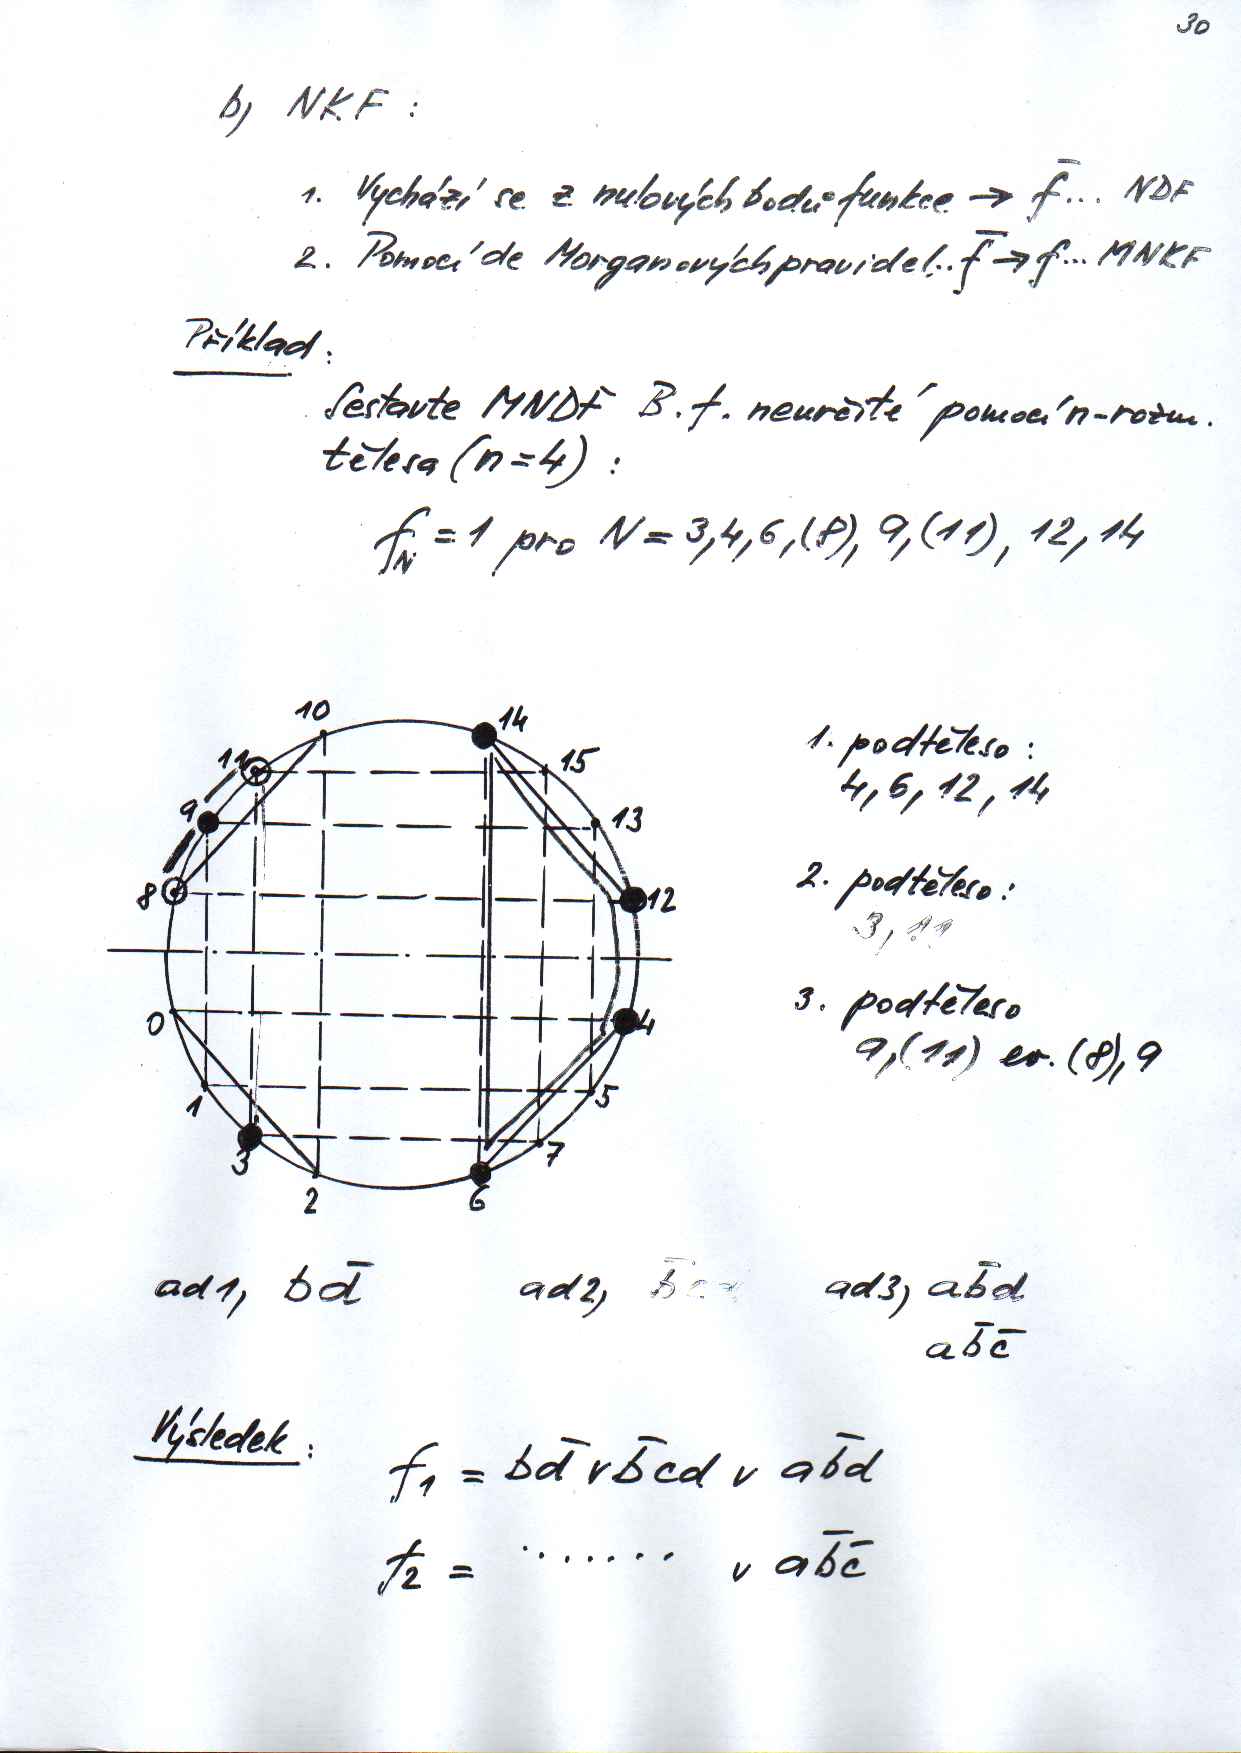 30
b) NKF :
1. Vychází se z nulových bodů funkce → f̅... NDF
2. Pomocí de Morganových pravidel.. f̅ → f... MNKF
Příklad :
Sestavte MNDF B.f. neurčité pomocí n-rozm.
tělesa (n=4) :
f_N = 1 pro N = 3,4,6,(8), 9,(11), 12, 14
10
14
11
15
9
13
8
12
0
4
1
5
3
7
2
6
1. podtěleso :
4, 6, 12, 14
2. podtěleso :
3, 11
3. podtěleso
9,(11) ev. (8), 9
ad1) bd̅
ad2) b̅c
ad3) ab̅d
ab̅c̅
Výsledek :
f₁ = bd̅ v b̅cd v ab̅d
f₂ = ....... v ab̅c̅